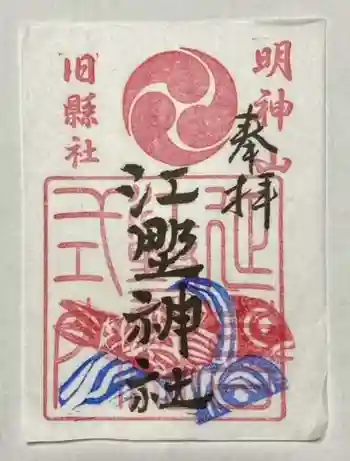 明神山
奉拝
江野神社
旧縣社